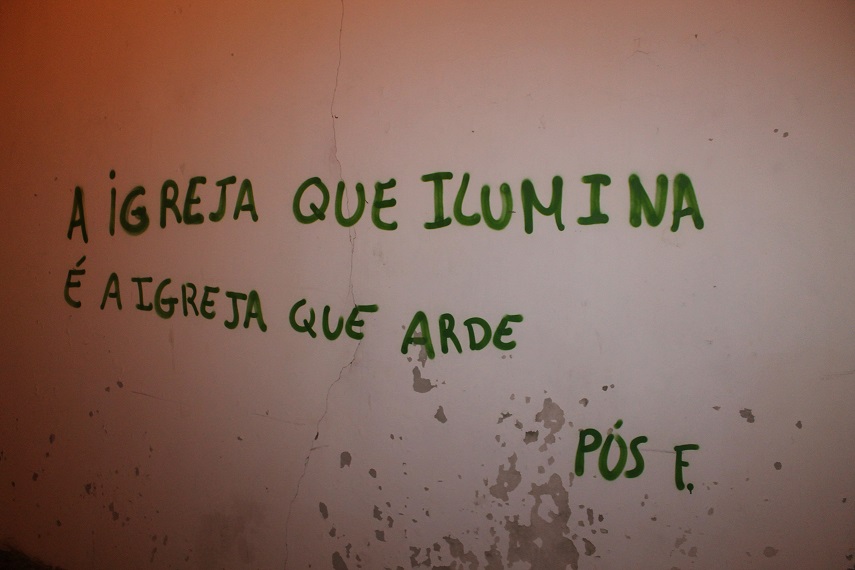 A IGREJA QUE ILUMINA
É A IGREJA QUE ARDE
PÓS F.